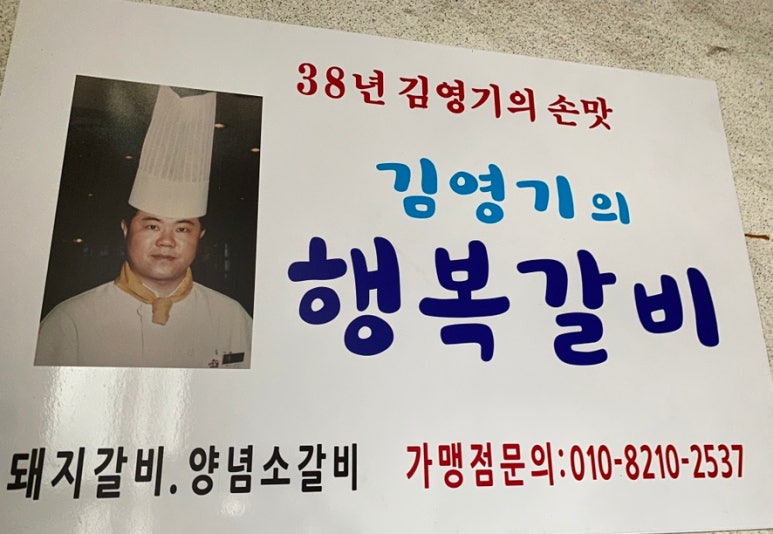 38년 김영기의 손맛
김영기의
행복갈비
돼지갈비.양념소갈비
가맹점문의:010-8210-2537